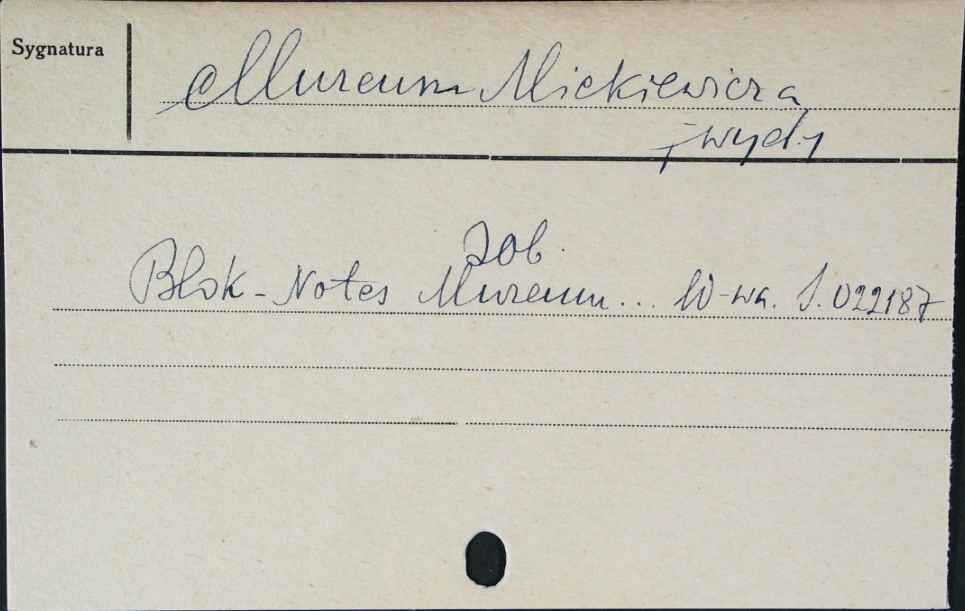 Sygnatura
Muzeum Mickiewicza
/wyd./
Zob.
Blok-Notes Muzeum... W-wa. S. 022187